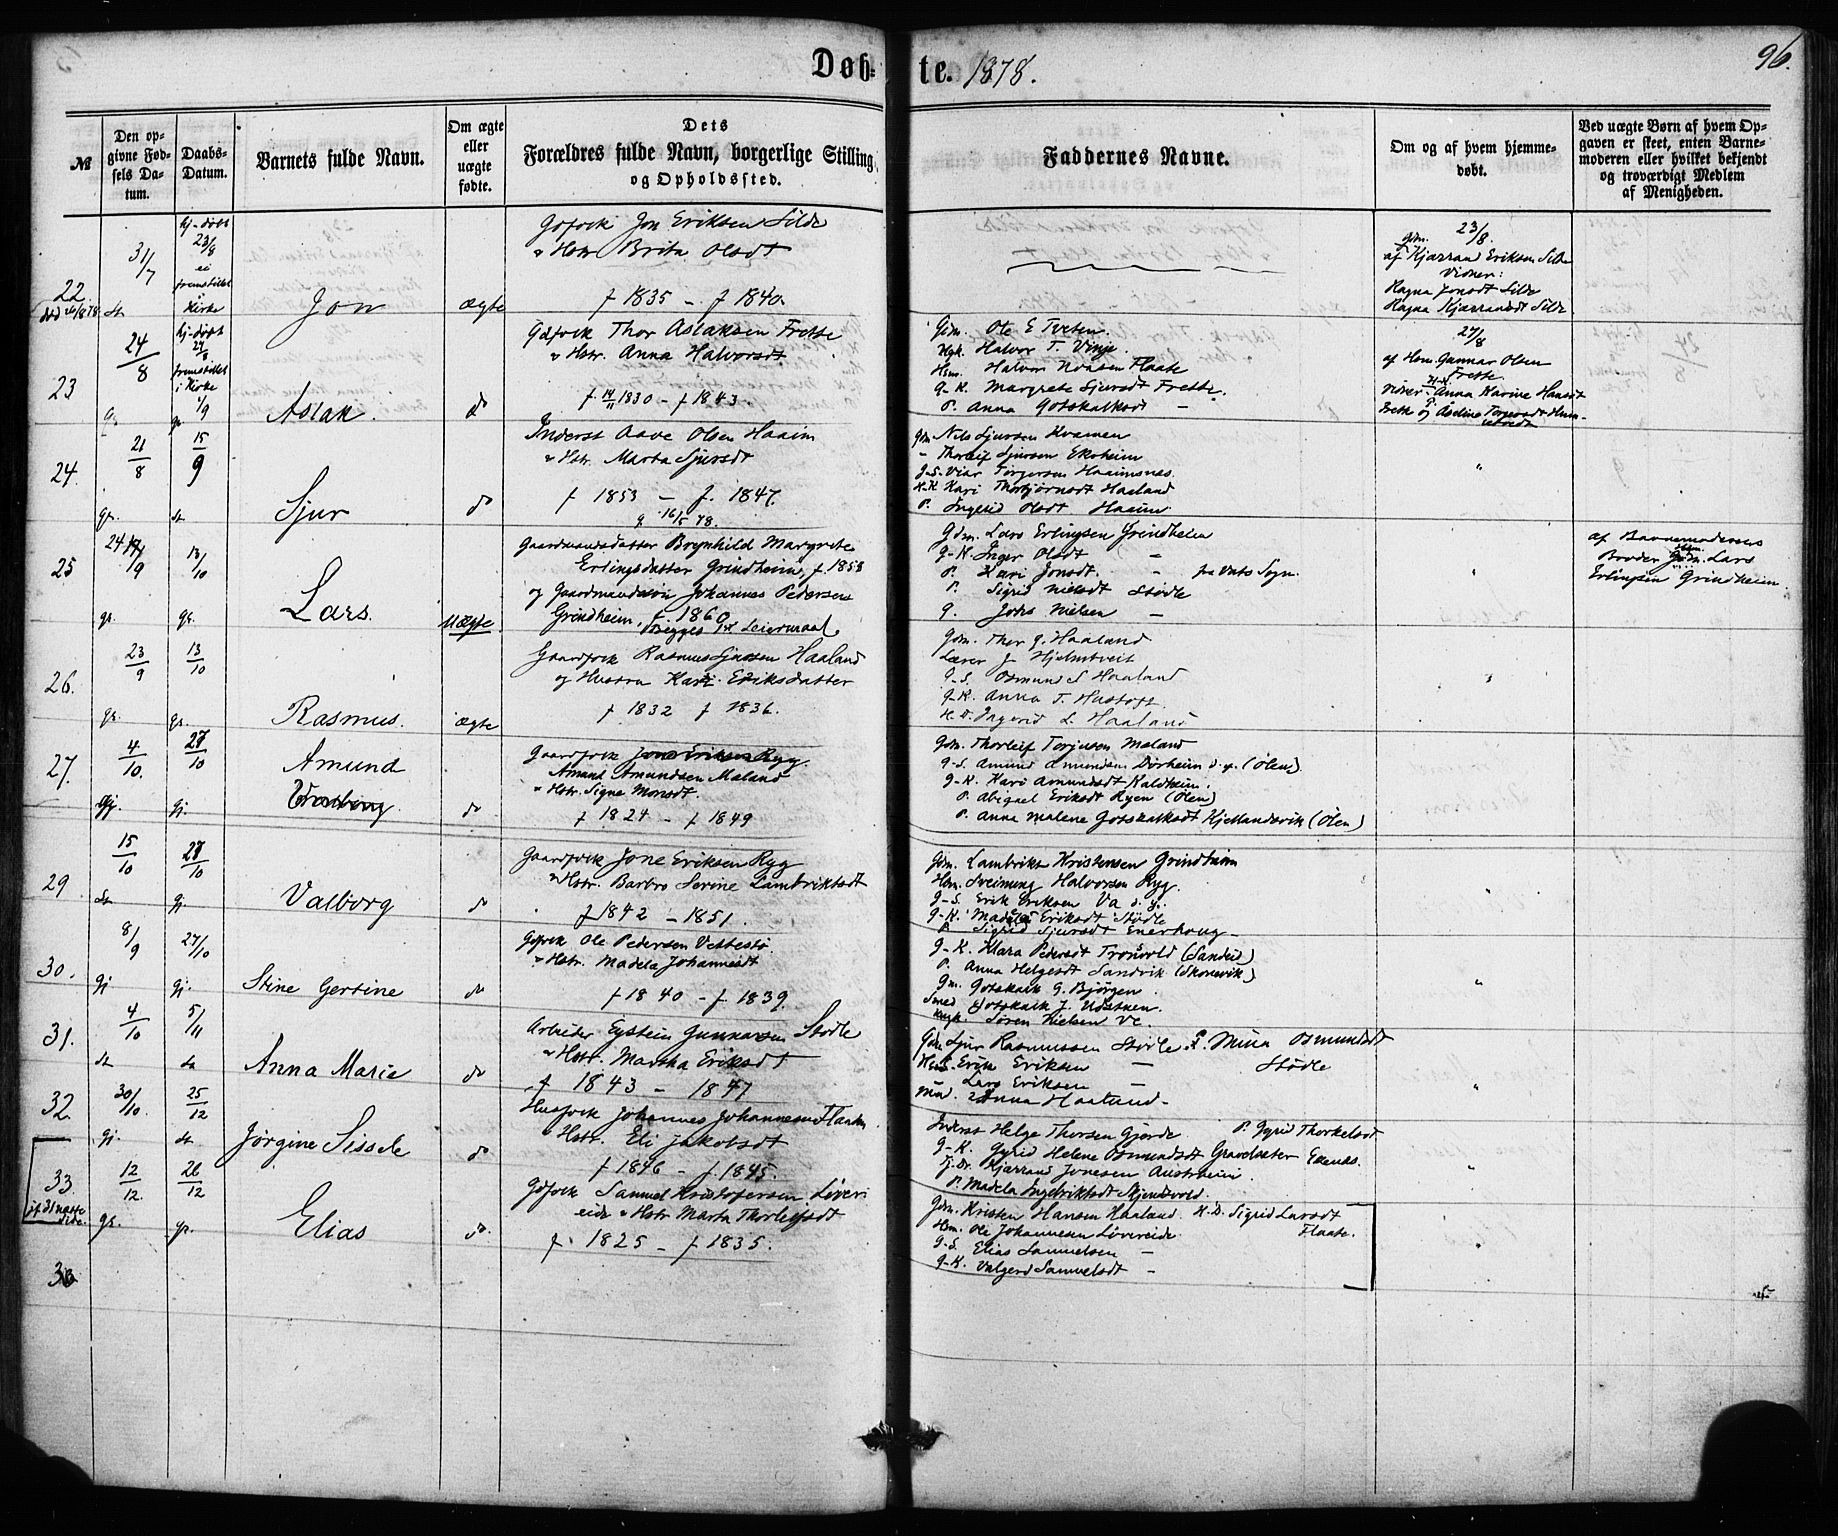 Døb-
te. 1878.
96.
№
Den op-
givne Fød-
sels Da-
tum.
Daabs-
Datum.
Barnets fulde Navn.
Om ægte
eller
uægte
fødte.
Dets
Forældres fulde Navn, borgerlige Stilling
og Opholdssted.
Faddernes Navne.
Om og af hvem hjemme-
døbt.
Ved uægte Børn af hvem Op-
gaven er skeet, enten Barne-
moderen eller hvilket bekjendt
og troværdigt Medlem
af Menigheden.
22
31/7
hj-døbt
23/8
ei
fremstillet
i
Kirke
Jon
ægte
Gdfolk Jon Eriksen Silde
o Hstr Brita Olsdt
f 1835 - f 1840.
23/8.
af Kjærran Eriksen Silde
Vidner:
Ragna Jonsdt Silde
Ragna Kjærransdt Silde
23
24/8
hj-døbt
27/8
fremstillet
i Kirke
1/9
Aslak.
do
Gdfolk Thor Aslaksen Frette
o Hstr. Anna Halvorsdt
f. 14/11 1830 - f 1843.
Gdm. Ole E Tveten.
Ugk. Halvor T. Vinje.
Hsm. Halvor Noasen Flaate
G-K. Margrete Sjursdt Frette.
P. Anna Gotskalksdt -
27/8
af Hsm. Gunnar Olsen
Frette
Vidner: Anna Karine Hansdt
24.
21/8
15/9
gr.
st
Sjur
do
Inderst Aave Olsen Haaim
o Hstr. Marta Sjursdt
f 1853 - f. 1847.
g 16/5 78.
Gdm Nils Sjursen Kvamen
- Thorleif Sjursen Ekrheim
G-S. Viar Torgersen Haaimsnes.
H-K Kari Thorbjørnsdt Haaland
P. Ingerid Olsdt Haaim
"
25
24/9
13/10
gr.
gr.
Lars.
Uægte
Gaardmandsdatter Brynhild Margrete
Erlingsdatter Grindheim, f. 1853
og Gaardmandssøn Johannes Pedersen
Grindheim, f. 1860
Begges 1ste Leiermaal
Gdm. Lars Erlingsen Grindheim
G-K. Inger Olsdt -
P. Kari Jonsdt. - fra Vats Sogn.
P. Sigrid Nielsdt Stødle
G. Johs Nielsen -
"
af Barnemoderens
Broder Gdm. Lars
Erlingsen Grindheim
26.
23/9
13/10
gr.
gr.
Rasmus.
ægte
Gaardfolk Rasmus Sjursen Haaland
og Hustru Kari Eriksdatter
f 1832 f 1836.
Gdm. Thor G. Haaland
Lærer J Hjelmtveit
G-S. Osmund S Haaland
G-K. Anna T. Hustoft
H. D. Ingerid L. Haaland
"
27.
4/10.
27/10
Gj.
Gj.
Amund
do
Gaardfolk Jone Eriksen Ryg.
Amund Amundsen Maland
o Hstr. Signe Monsdt.
f 1824 - f 1849
Gdm. Thorleif Torjusen Maland
G-S. Amund Amundsen Dørheim d. y. (Ølen)
G-K. Kari Amundsdt Kaldheim.
P. Abigael Eriksdt Ryen (Ølen)
P. Anna Malene Gotskalksdt Kjellandsvik (Ølen)
29.
15/10
27/10
st
Gj.
Valborg
do
Gaardfolk Jone Eriksen Ryg
o Hstr. Barbro Serine Lambriktsdt
f 1842 - 1851.
Gdm. Lambrikt Kristensen Grindheim
Hsm. Sveinung Halvorsen Ryg.
G-S. Erik Eriksen Va d. y.
G-K. Madela Eriksdt Stødle
P. Sigrid Sjursdt Enerhoug -
"
30.
8/9
27/10
gj
gj.
Stine Gertine
do
Gdfolk Ole Pedersen Vettestø
o Hstr. Madela Johannesdt
f 1840 - f 1839.
G-K. Klara Pedersdt Tronvold (Sandeid)
P. Anna Helgesdt Sandvik (Skonevik)
Gm. Gotskalk G. Bjørgen
Smed Gotskalk J. Udstuen
Ungk. Søren Nielsen Ve.
"
31.
4/10
5/11
st
st
Anna Marie
do
Arbeider Eystein Gunnarsen Stødle
o Hstr. Martha Eriksdt
f 1843 - 1847
Gdm Sjur Rasmussen Stødle. P. Mina Osmundsdt
Stødle
Erik Eriksen -
- Lars Eriksen -
Anna Haaland -
"
32.
30/10.
25/12
gj.
st
Jørgine Sissele
do
Husfolk Johannes Johannesen Flaaten
o Hstr. Eli Jakobsdt
f 1846 - f. 1845.
Inderst Helge Thorsen Gjerde. P. Gyrid Thorkelsdt
G-K. Gyrid Helene Osmundsdt Gravdseter Etends.
Kjærrand Jonesen Austrheim
P. Madela Ingebriktsdt Skjensvold.
"
33
12/12.
26/12
gr.
gr.
Elias
do.
Gdfolk Samuel Kristofersen Løver-
eide o Hstr Marta Thorleifsdt
f. 1825 - f 1835.
Gdm. Kristen Hansen Haaland. H. D. Sigrid Larsdt
Flaate.
Hsm. Ole Johannesen Løvereide
G-S. Elias Samuelsen -
G-K. Valgerd Samuelsdt -
"